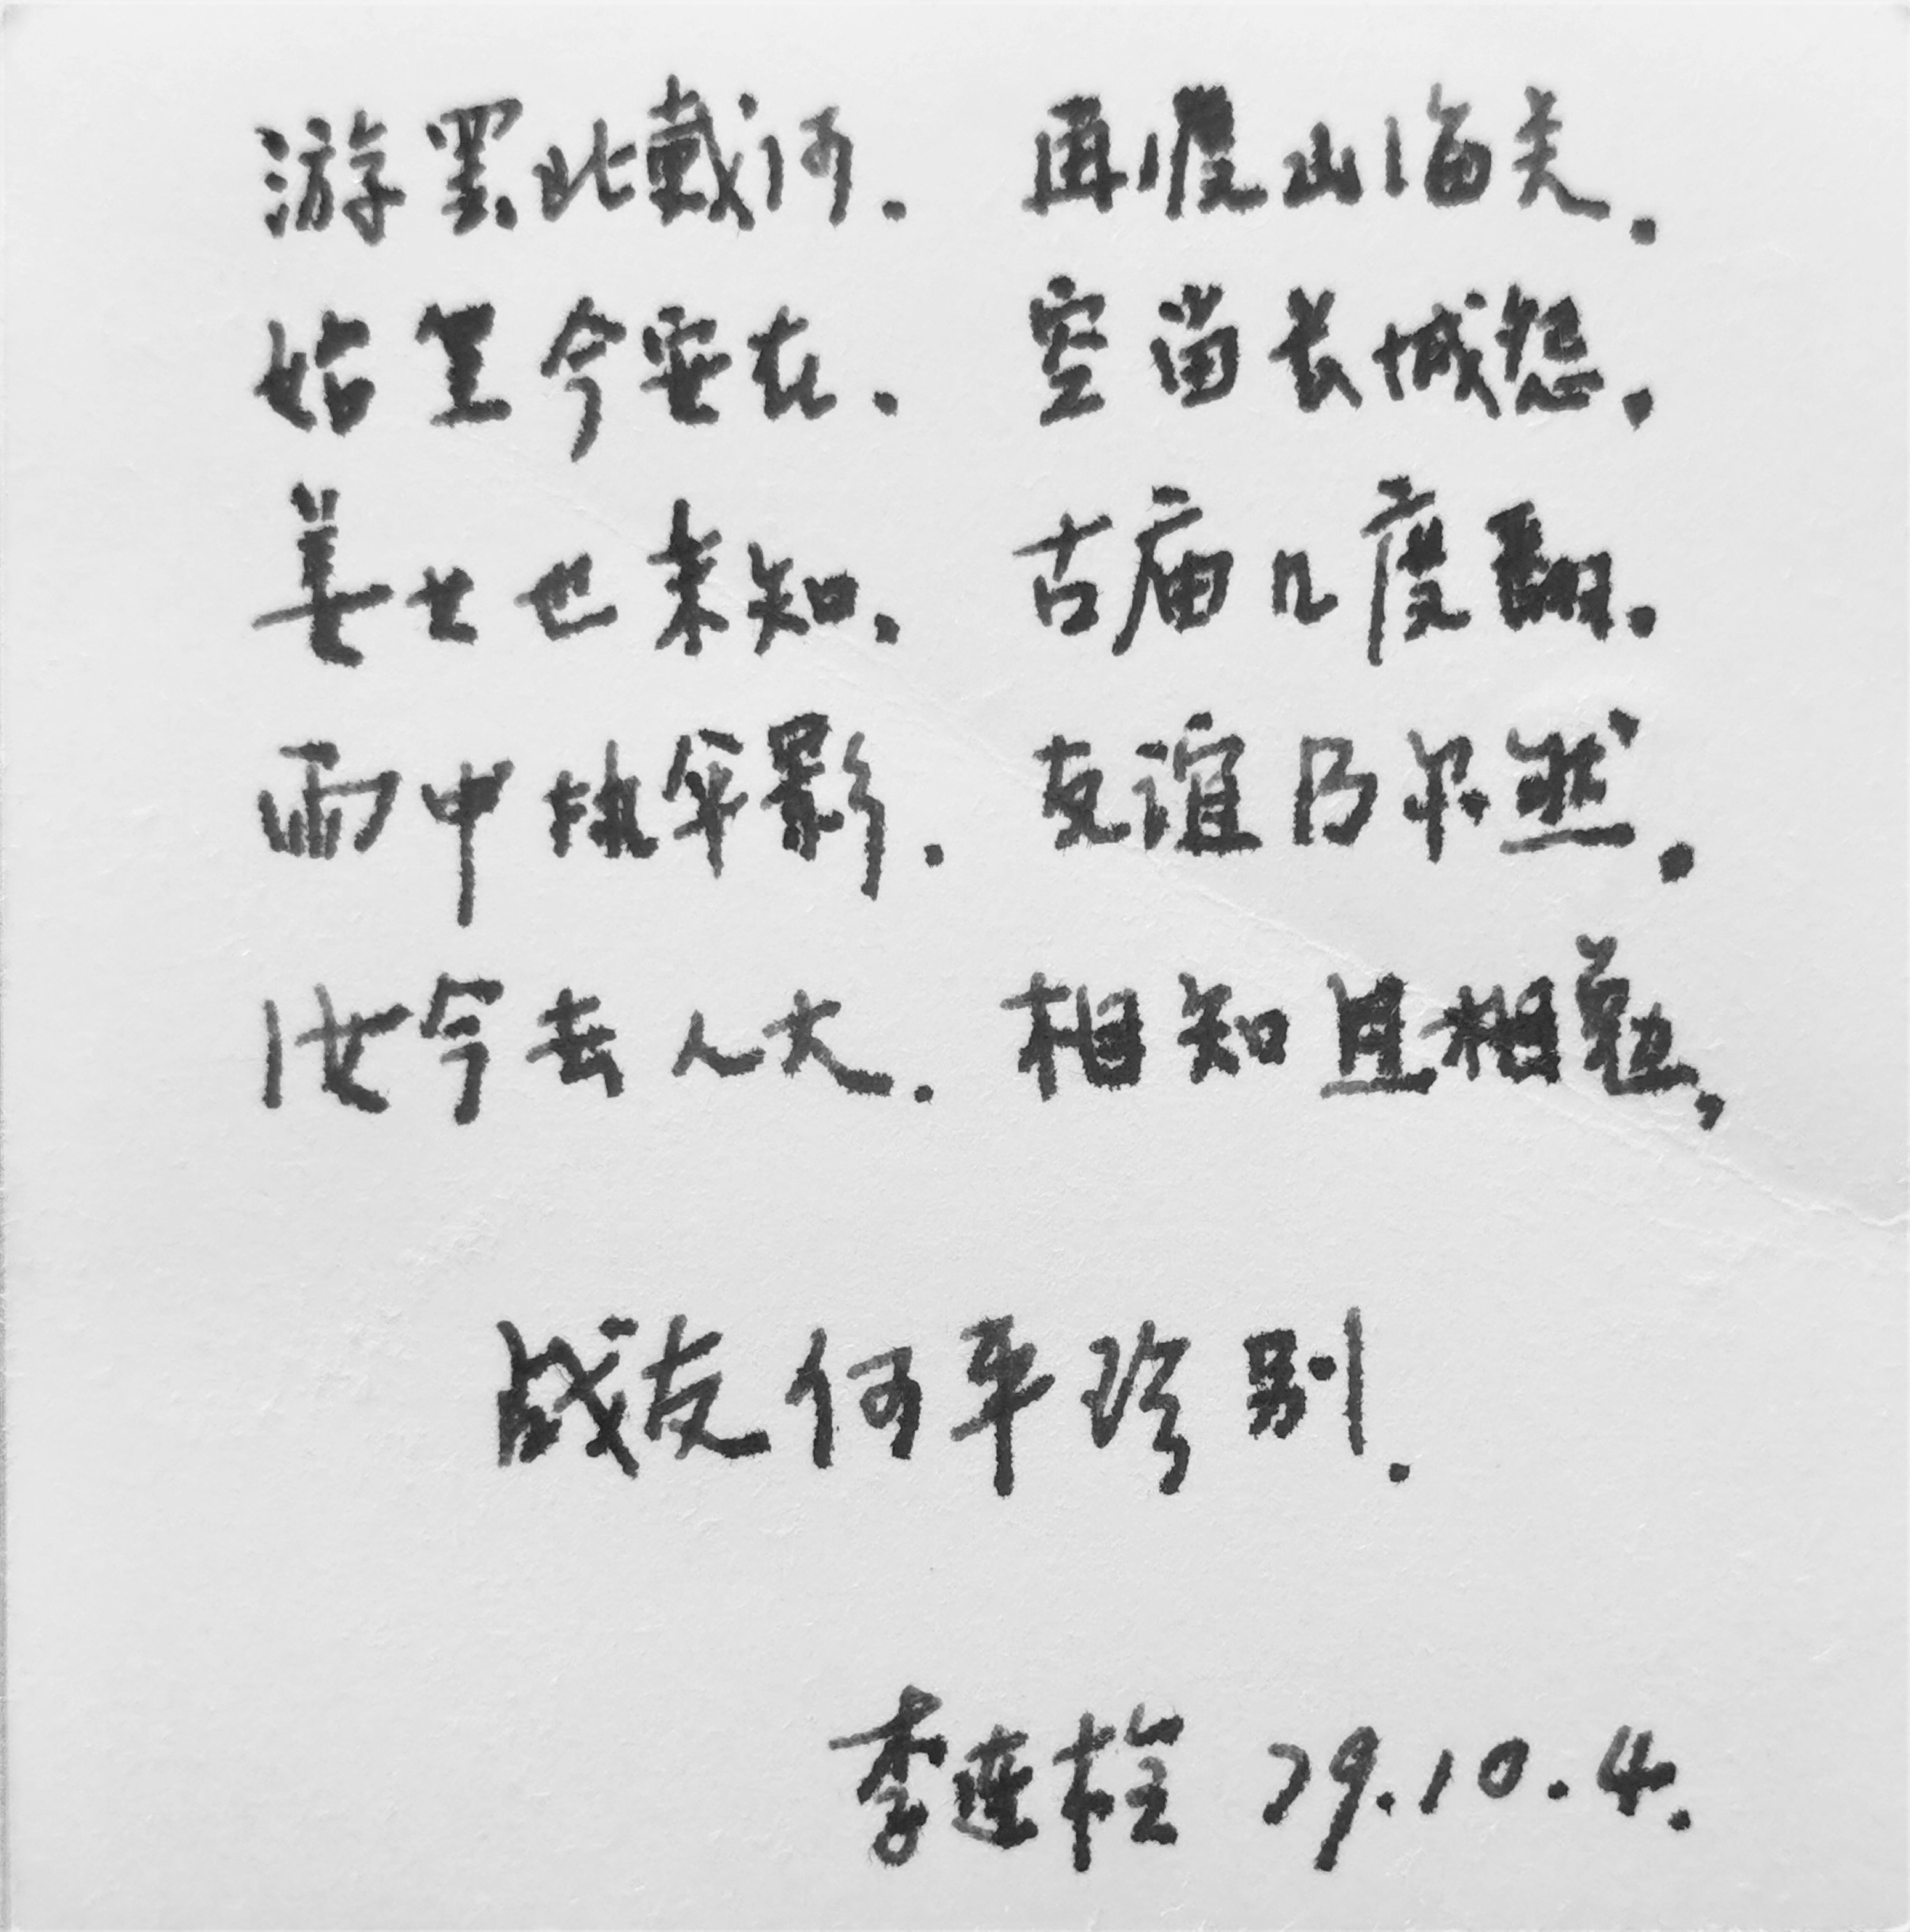 游罢北戴河. 再渡山海关.
始皇今安在. 空留长城怨.
姜女也未知. 古庙几度翻.
雨中执伞影. 友谊乃尔然.
汝今去人大. 相知且相勉,
战友何平珍别.
李连栓 79.10.4.